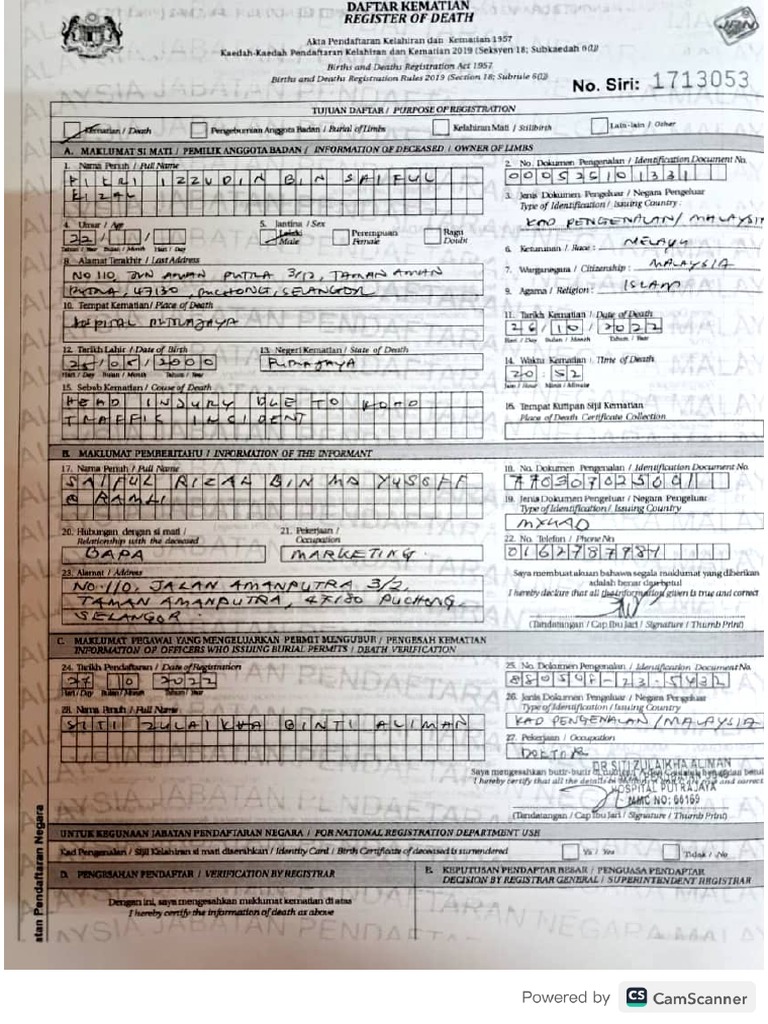 DAFTAR KEMATIAN
REGISTER OF DEATH
Akta Pendaftaran Kelahiran dan Kematian 1957
Kaedah-Kaedah Pendaftaran Kelahiran dan Kematian 2019 (Seksyen 18; Subkaedah 6(1))
Births and Deaths Registration Act 1957
Births and Deaths Registration Rules 2019 (Section 18; Subrule 6(1))
No. Siri: 1713053
TUJUAN DAFTAR / PURPOSE OF REGISTRATION
Kematian / Death
Pengebumian Anggota Badan / Burial of Limbs
Kelahiran Mati / Stillbirth
Lain-lain / Other
A. MAKLUMAT SI MATI / PEMILIK ANGGOTA BADAN / INFORMATION OF DECEASED / OWNER OF LIMBS
1. Nama Penuh / Full Name
FIKRI IZZUDIN BIN SAIFUL
RIZAL
2. No. Dokumen Pengenalan / Identification Document No.
000526101331
3. Jenis Dokumen Pengeluar / Negara Pengeluar
Type of Identification / Issuing Country :
KAD PENGENALAN / MALAYSIA
4. Umur / Age
22
Tahun / Year Bulan / Month Hari / Day
5. Jantina / Sex
Lelaki
Male
Perempuan
Female
Ragu
Doubt
6. Keturunan / Race : MELAYU
7. Warganegara / Citizenship : MALAYSIA
8. Alamat Terakhir / Last Address
NO 110, JLN AMAN PUTRA 3/2, TAMAN AMAN
PUTRA, 47130, PUCHONG, SELANGOR
9. Agama / Religion : ISLAM
10. Tempat Kematian / Place of Death
HOSPITAL PUTRAJAYA
11. Tarikh Kematian / Date of Death
26/10/2022
Hari / Day Bulan / Month Tahun / Year
12. Tarikh Lahir / Date of Birth
26/05/2000
Hari / Day Bulan / Month Tahun / Year
13. Negeri Kematian / State of Death
PUTRAJAYA
14. Waktu Kematian / Time of Death
20:52
Jam / Hour Minit / Minute
15. Sebab Kematian / Cause of Death
HEAD INJURY DUE TO ROAD
TRAFFIC INCIDENT
16. Tempat Kutipan Sijil Kematian
Place of Death Certificate Collection
B. MAKLUMAT PEMBERITAHU / INFORMATION OF THE INFORMANT
17. Nama Penuh / Full Name
SAIFUL RIZAL BIN MD YUSOFF
@ RAMLI
18. No. Dokumen Pengenalan / Identification Document No.
19. Jenis Dokumen Pengeluar / Negara Pengeluar
Type of Identification / Issuing Country
MYKAD
20. Hubungan dengan si mati /
Relationship with the deceased
BAPA
21. Pekerjaan /
Occupation
MARKETING
22. No. Telefon / Phone No
23. Alamat / Address
NO. 110, JALAN AMANPUTRA 3/2,
TAMAN AMANPUTRA, 47130 PUCHONG,
SELANGOR
Saya membuat akuan bahawa segala maklumat yang diberikan
adalah benar dan betul
I hereby declare that all the information given is true and correct
(Tandatangan / Cap Ibu Jari / Signature / Thumb Print)
C. MAKLUMAT PEGAWAI YANG MENGELUARKAN PERMIT MENGUBUR / PENGESAH KEMATIAN
INFORMATION OF OFFICERS WHO ISSUING BURIAL PERMITS / DEATH VERIFICATION
24. Tarikh Pendaftaran / Date of Registration
27 10 2022
Hari / Day Bulan / Month Tahun / Year
25. No. Dokumen Pengenalan / Identification Document No.
26. Jenis Dokumen Pengenalan / Negara Pengeluar
Type of Identification / Issuing Country
KAD PENGENALAN / MALAYSIA
28. Nama Penuh / Full Name
SITI ZULAIKHA BINTI ALIMAN
27. Pekerjaan / Occupation
DOKTOR
DR SITI ZULAIKHA ALIMAN
HOSPITAL PUTRAJAYA
MMC NO: 66169
(Tandatangan / Cap Ibu Jari / Signature / Thumb Print)
UNTUK KEGUNAAN JABATAN PENDAFTARAN NEGARA / FOR NATIONAL REGISTRATION DEPARTMENT USE
Kad Pengenalan / Sijil Kelahiran si mati diserahkan / Identity Card / Birth Certificate of deceased is surrendered
Ya / Yes
Tidak / No
D. PENGESAHAN PENDAFTAR / VERIFICATION BY REGISTRAR
E. KEPUTUSAN PENDAFTAR BESAR / PENGUASA PENDAFTAR
DECISION BY REGISTRAR GENERAL / SUPERINTENDENT REGISTRAR
Dengan ini, saya mengesahkan maklumat kematian di atas
I hereby certify the information of death as above
Powered by CS CamScanner